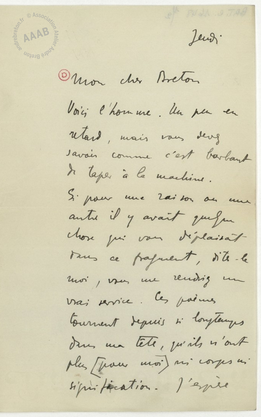 AAAB
Jeudi
Mon cher Breton
Voici l'homme. Un peu en
retard, mais vous devez
savoir comme c'est barbant
de taper à la machine.
Si pour une raison ou une
autre il y avait quelque
chose qui vous déplaisait
dans ce fragment, dites-le
moi, vous me rendrez un
vrai service. Ces poèmes
tournent depuis si longtemps
dans ma tête, qu'ils n'ont
plus [pour moi] ni corps ni
signification. J'espère